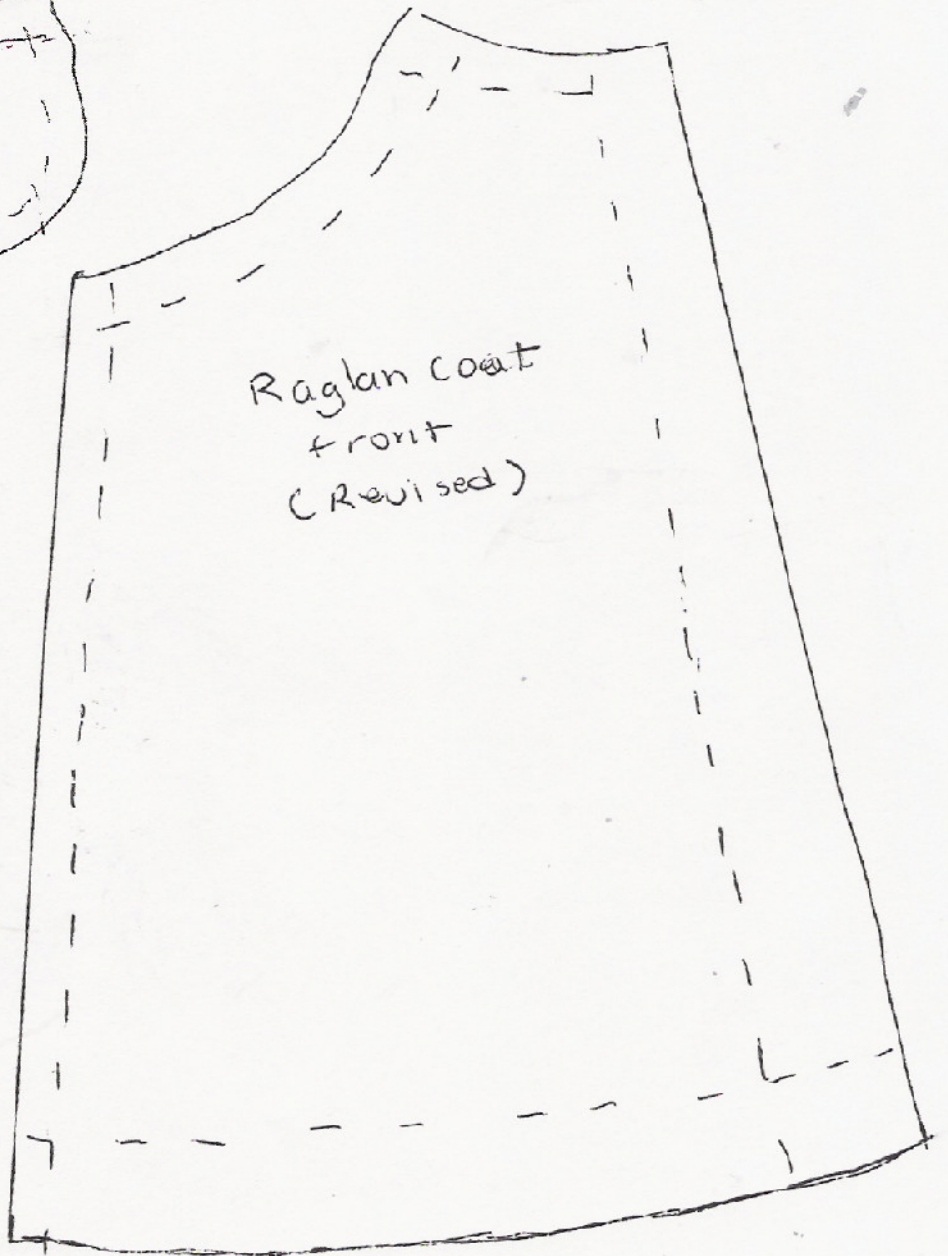 Raglan coat
front
(Revised)